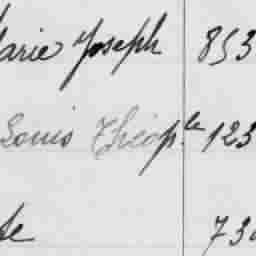 Marie Joseph 853
Louis Théop.le 123
te 730